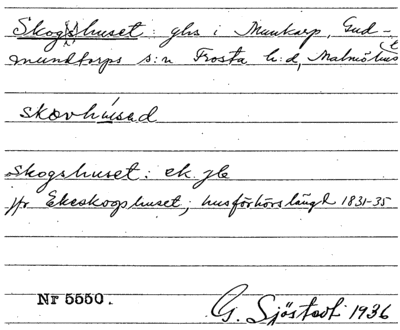 Skogshuset: ghs i Munkarp, Gud-
mundtorps s:n Frosta h:d, Malmöhus l
skovhúsəd
Skogshuset: ek. jb
jfr Ekeskogshuset; husförhörslängd 1831-35
Nr 5550.
G. Sjöstedt 1936